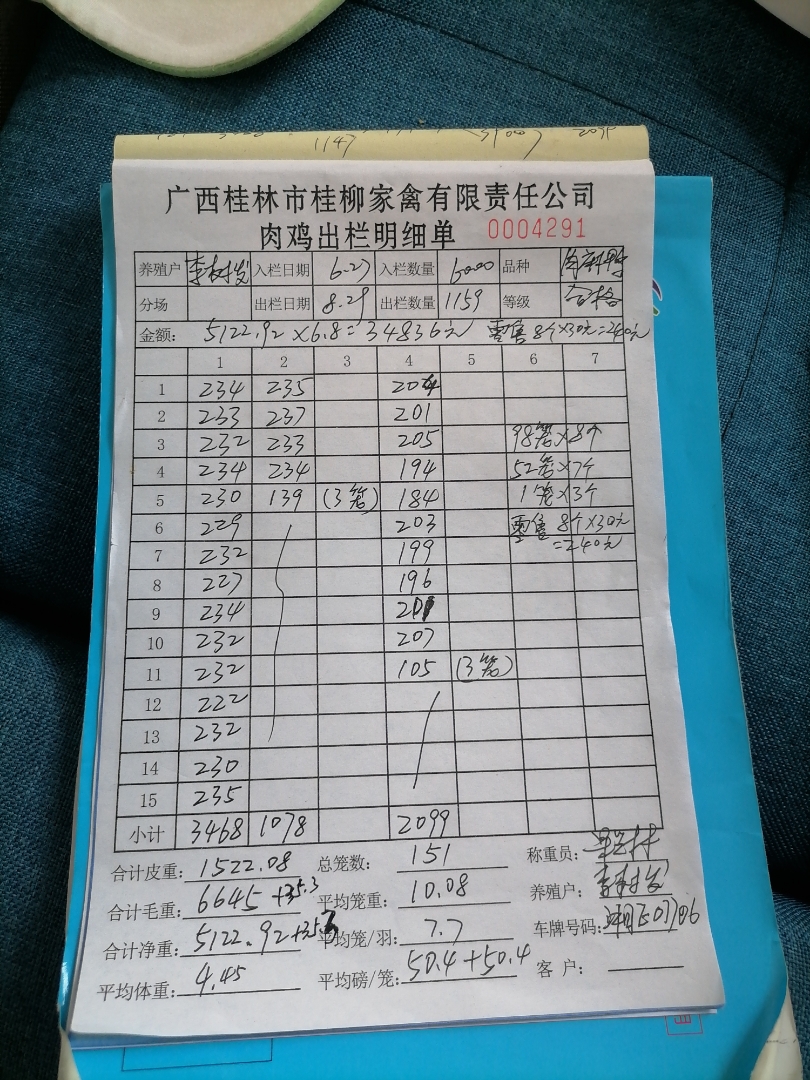 1147
广西桂林市桂柳家禽有限责任公司
肉鸡出栏明细单 0004291
养殖户 李树发 入栏日期 6.27 入栏数量 6000 品种
分场 出栏日期 8.29 出栏数量 1159 等级 合格
金额: 5122.92×6.8=34836元 零售8个×30元=240元
1 2 3 4 5 6 7
1 234 235 204
2 233 237 201
3 232 233 205 98笼×8个
4 234 234 194 52笼×7个
5 230 139 (3笼) 184 1笼×3个
6 229 203 零售 8个×30元
7 232 199 =240元
8 227 196
9 234 201
10 232 207
11 232 105 (3笼)
12 222
13 232
14 230
15 235
小计 3468 1078 2099
合计皮重: 1522.08 总笼数: 151 称重员:
合计毛重: 6645 +35.3 平均笼重: 10.08 养殖户: 李树发
合计净重: 5122.92+35.3 平均笼/羽: 7.7 车牌号码:
平均体重: 4.45 平均磅/笼: 50.4+50.4 客户: